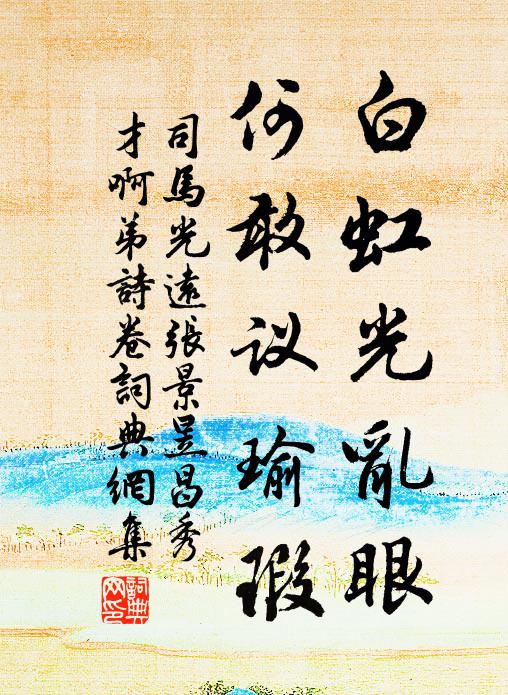 白虹光亂眼
何敢议瑜瑕
司馬光遠張景昱昌秀
才啊弟詩卷詞典網集
詞典
网印